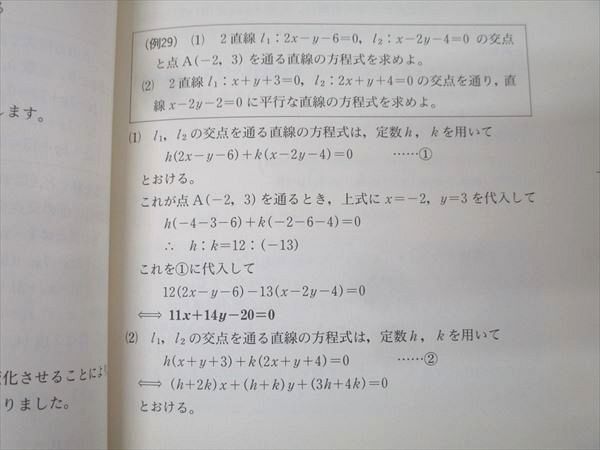 します。
変化させることにより
りました。
(例29) (1) 2直線 l₁：2x−y−6=0，l₂：x−2y−4=0 の交点
と点 A(−2，3) を通る直線の方程式を求めよ。
(2) 2直線 l₁：x+y+3=0，l₂：2x+y+4=0 の交点を通り，直
線 x−2y−2=0 に平行な直線の方程式を求めよ。
(1) l₁，l₂ の交点を通る直線の方程式は，定数 h，k を用いて
h(2x−y−6)+k(x−2y−4)=0 ……①
とおける。
これが点 A(−2，3) を通るとき，上式に x=−2，y=3 を代入して
h(−4−3−6)+k(−2−6−4)=0
∴ h：k=12：(−13)
これを①に代入して
12(2x−y−6)−13(x−2y−4)=0
⟺ 11x+14y−20=0
(2) l₁，l₂ の交点を通る直線の方程式は，定数 h，k を用いて
h(x+y+3)+k(2x+y+4)=0 ……②
⟺ (h+2k)x+(h+k)y+(3h+4k)=0
とおける。